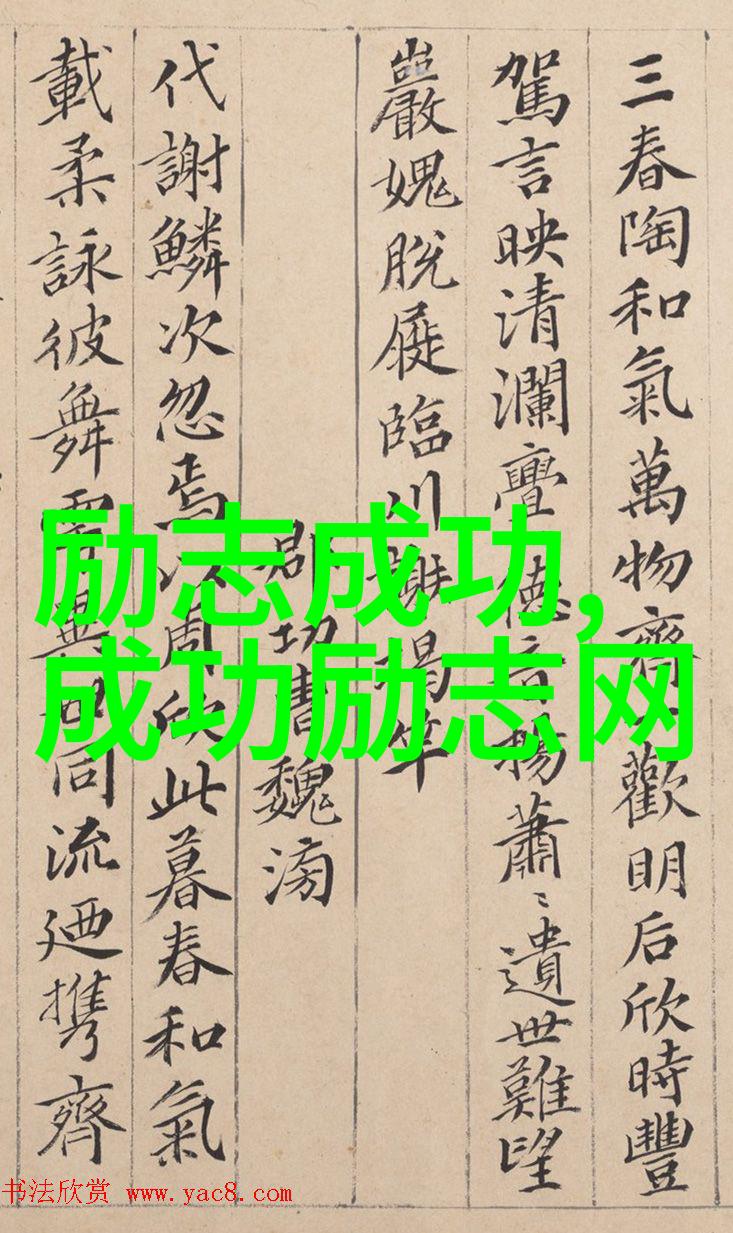 三春陶和氣萬物齊歡明后欣時豐
駕言映清瀾亹德音暢蕭〻遺世難望
巖愧脫屣臨川謝揭竿
郡功曹魏滂
代謝鱗次忽焉以周欣此暮春和氣
載柔詠彼舞雩異世同流廼携齊
励志成功,
成功励志网
书法欣赏 www.yac8.com